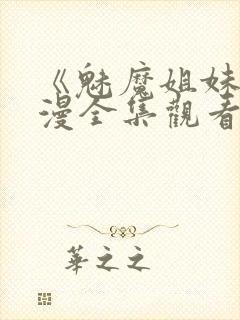 《魅魔姐妹
漫全集觀看
華之之